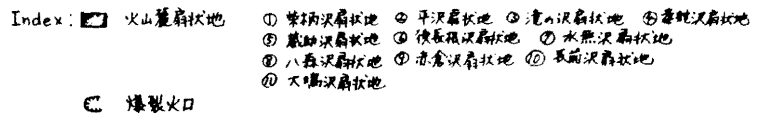 Index: 火山麓扇状地 ① 柴柄沢扇状地 ② 平沢扇状地 ③ 滝の沢扇状地 ④ 沢扇状地
⑤ 蔵助沢扇状地 ⑥ 後長根沢扇状地 ⑦ 水無沢扇状地
⑧ 八森沢扇状地 ⑨ 赤倉沢扇状地 ⑩ 長前沢扇状地
⑪ 大鳴沢扇状地
爆裂火口